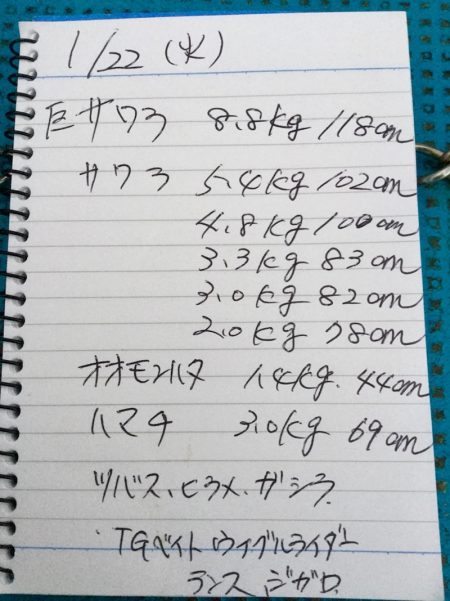 1/22 (水)
巨サワラ 8.8kg 118cm
サワラ 5.4kg 102cm
4.8kg 100cm
3.3kg 83cm
3.0kg 82cm
2.0kg 78cm
オオモンハタ 1.4kg. 44cm
ハマチ 3.0kg 69cm
ツバス、ヒラメ、ガシラ.
TGベイト ウィグルライダー
ランス ジガロ.